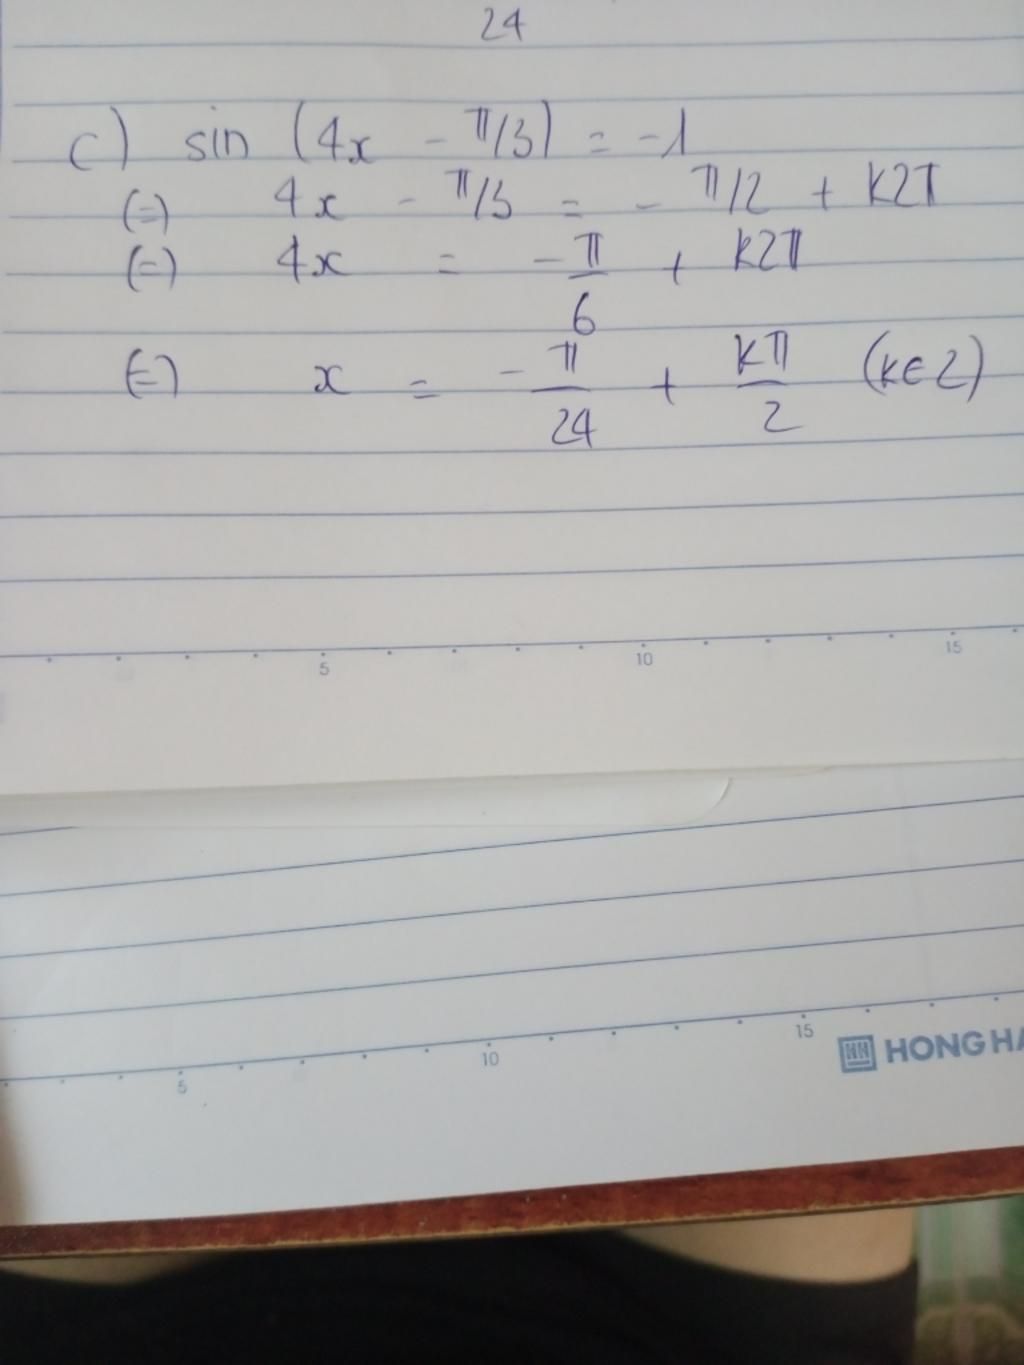 24
c) sin (4x - π/3) = -1
(=) 4x - π/3 = - π/2 + k2π
(=) 4x = -π/6 + k2π
(=) x = -π/24 + kπ/2 (k∈Z)
5 10 15
5 10 15
HONG HA